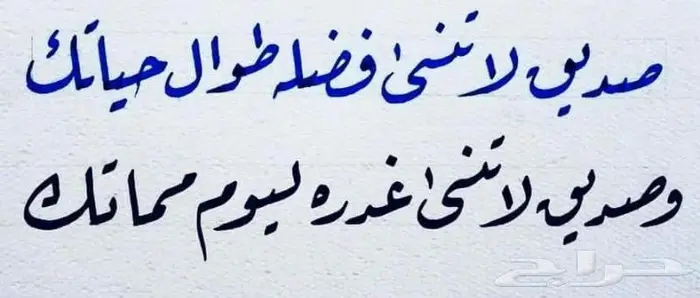 صديق لا تنسى فضله طوال حياتك
وصديق لا تنسى غدره ليوم مماتك
حراج